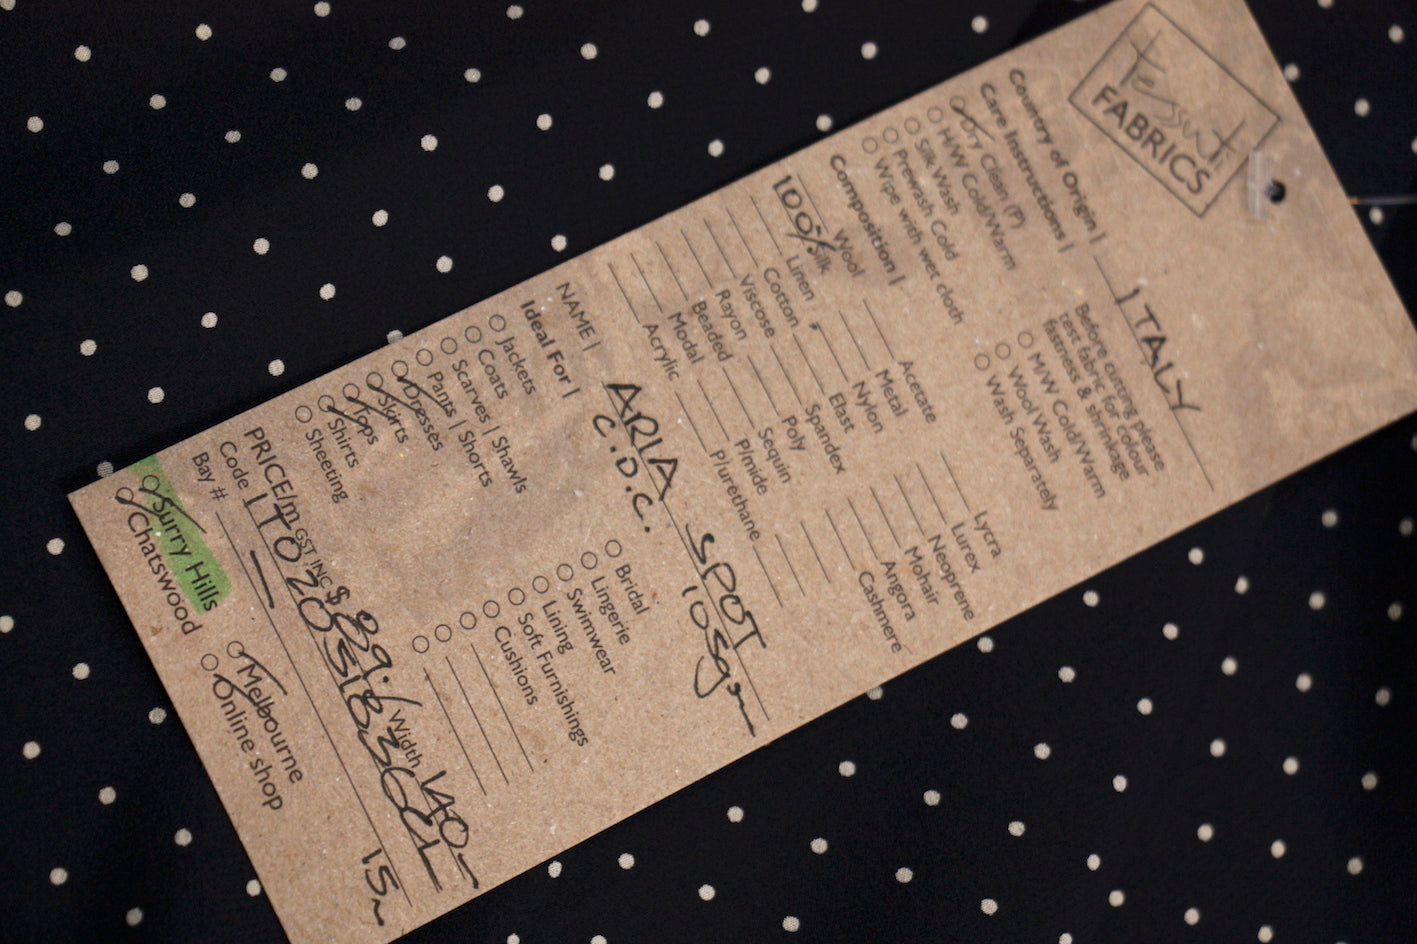 tessuti
FABRICS
Country of Origin | ITALY
Care Instructions |
Dry Clean (P)
H/W Cold/Warm
Silk Wash
Prewash Cold
Wipe with wet cloth
Before cutting please
test fabric for colour
fastness & shrinkage
M/W Cold/Warm
Wool Wash
Wash Separately
Composition |
Wool
100% Silk
Linen
Cotton
Viscose
Rayon
Beaded
Modal
Acrylic
Acetate
Metal
Nylon
Elast
Spandex
Poly
Sequin
P/mide
P/urethane
Lycra
Lurex
Neoprene
Mohair
Angora
Cashmere
NAME | ARIA SPOT
C.D.C. 105gsm
Ideal For |
Jackets
Coats
Scarves | Shawls
Pants | Shorts
Dresses
Skirts
Tops
Shirts
Sheeting
Bridal
Lingerie
Swimwear
Lining
Soft Furnishings
Cushions
PRICE/m GST INC $89.- Width 140-
Code
Bay # — 15m
Surry Hills
Chatswood
Melbourne
Online shop